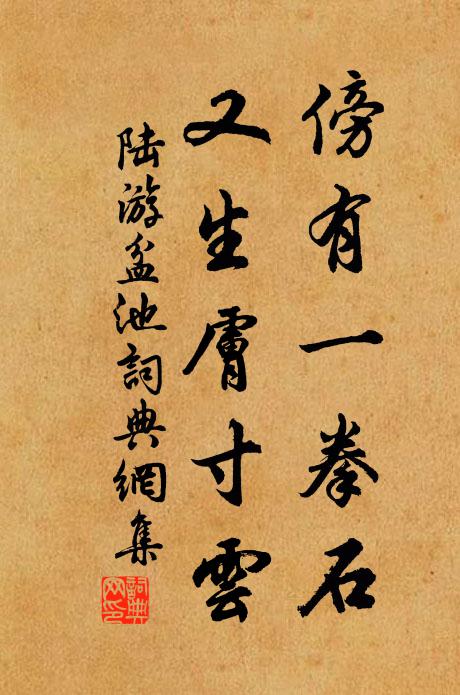 傍有一拳石
又生膚寸雲
陸游盆池詞典網集
詞典
网印